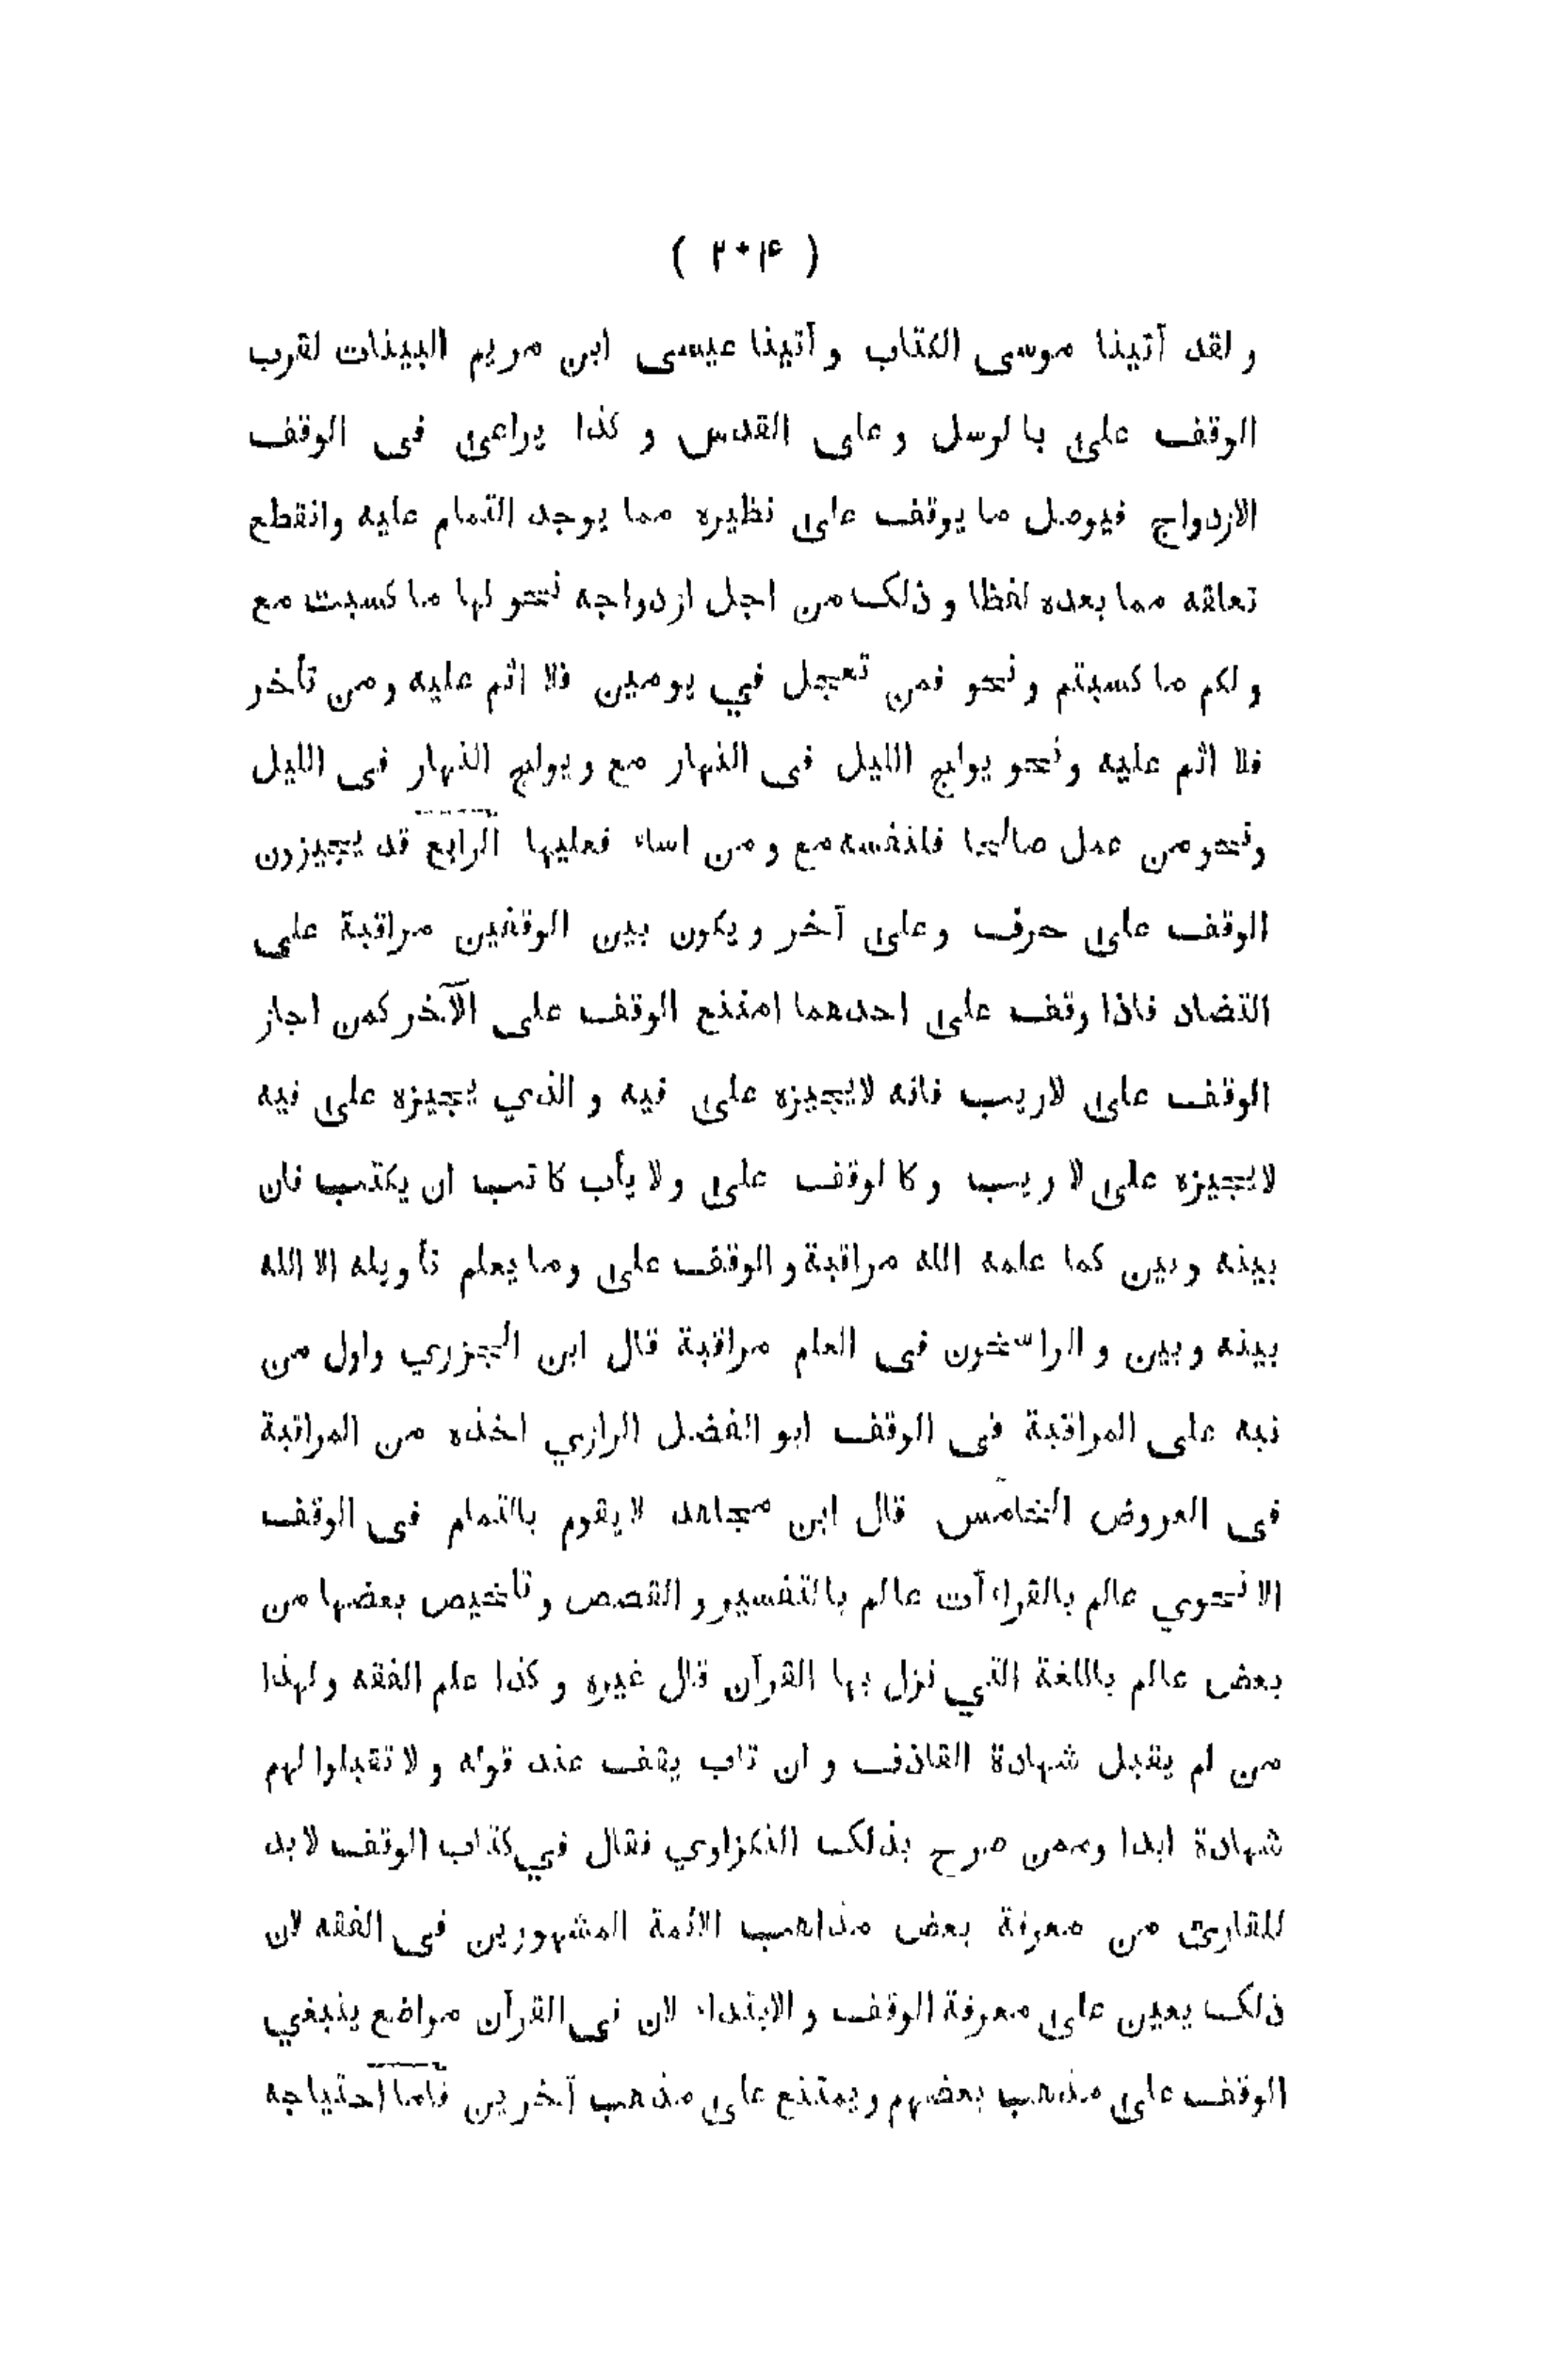 ( ۲۰۴ )
و لقد آتينا موسى الكتاب و آتينا عيسى ابن مريم البينات لقرب
الوقف على بالرسل و على القدس و كذا يراعى فى الوقف
الازدواج فيوصل ما يوقف على نظيره مما يوجد التمام عليه وانقطع
تعلقه مما بعده لفظا و ذلك من اجل ازدواجه نحو لها ما كسبت مع
و لكم ما كسبتم و نحو فمن تعجل في يومين فلا اثم عليه و من تأخر
فلا اثم عليه و نحو يولج الليل فى النهار مع و يولج النهار فى الليل
و نحو من عمل صالحا فلنفسه مع و من اساء فعليها الرابع قد يجيزون
الوقف على حرف و على آخر و يكون بين الوقفين مراقبة على
التضاد فاذا وقف على احدهما امتنع الوقف على الآخر كمن اجاز
الوقف على لاريب فانه لايجيزه على فيه و الذي يجيزه على فيه
لايجيزه على لا ريب و كالوقف على و لا يأب كاتب ان يكتب فان
بينه و بين كما علمه الله مراقبة و الوقف على و ما يعلم تأويله الا الله
بينه و بين و الراسخون فى العلم مراقبة قال ابن الجزري واول من
نبه على المراقبة فى الوقف ابو الفضل الرازي اخذه من المراقبة
فى العروض الخامس قال ابن مجاهد لا يقوم بالتمام فى الوقف
الا نحوي عالم بالقراءآت عالم بالتفسير و القصص و تلخيص بعضها من
بعض عالم باللغة التي نزل بها القرآن قال غيره و كذا علم الفقه و لهذا
من لم يقبل شهادة القاذف و ان تاب يقف عند قوله و لا تقبلوا لهم
شهادة ابدا و ممن صرح بذلك النكزاوي فقال في كتاب الوقف لابد
للقارئ من معرفة بعض مذاهب الائمة المشهورين فى الفقه لان
ذلك يعين على معرفة الوقف و الابتداء لان فى القرآن مواضع ينبغي
الوقف على مذهب بعضهم و يمتنع على مذهب آخرين فاما احتياجه